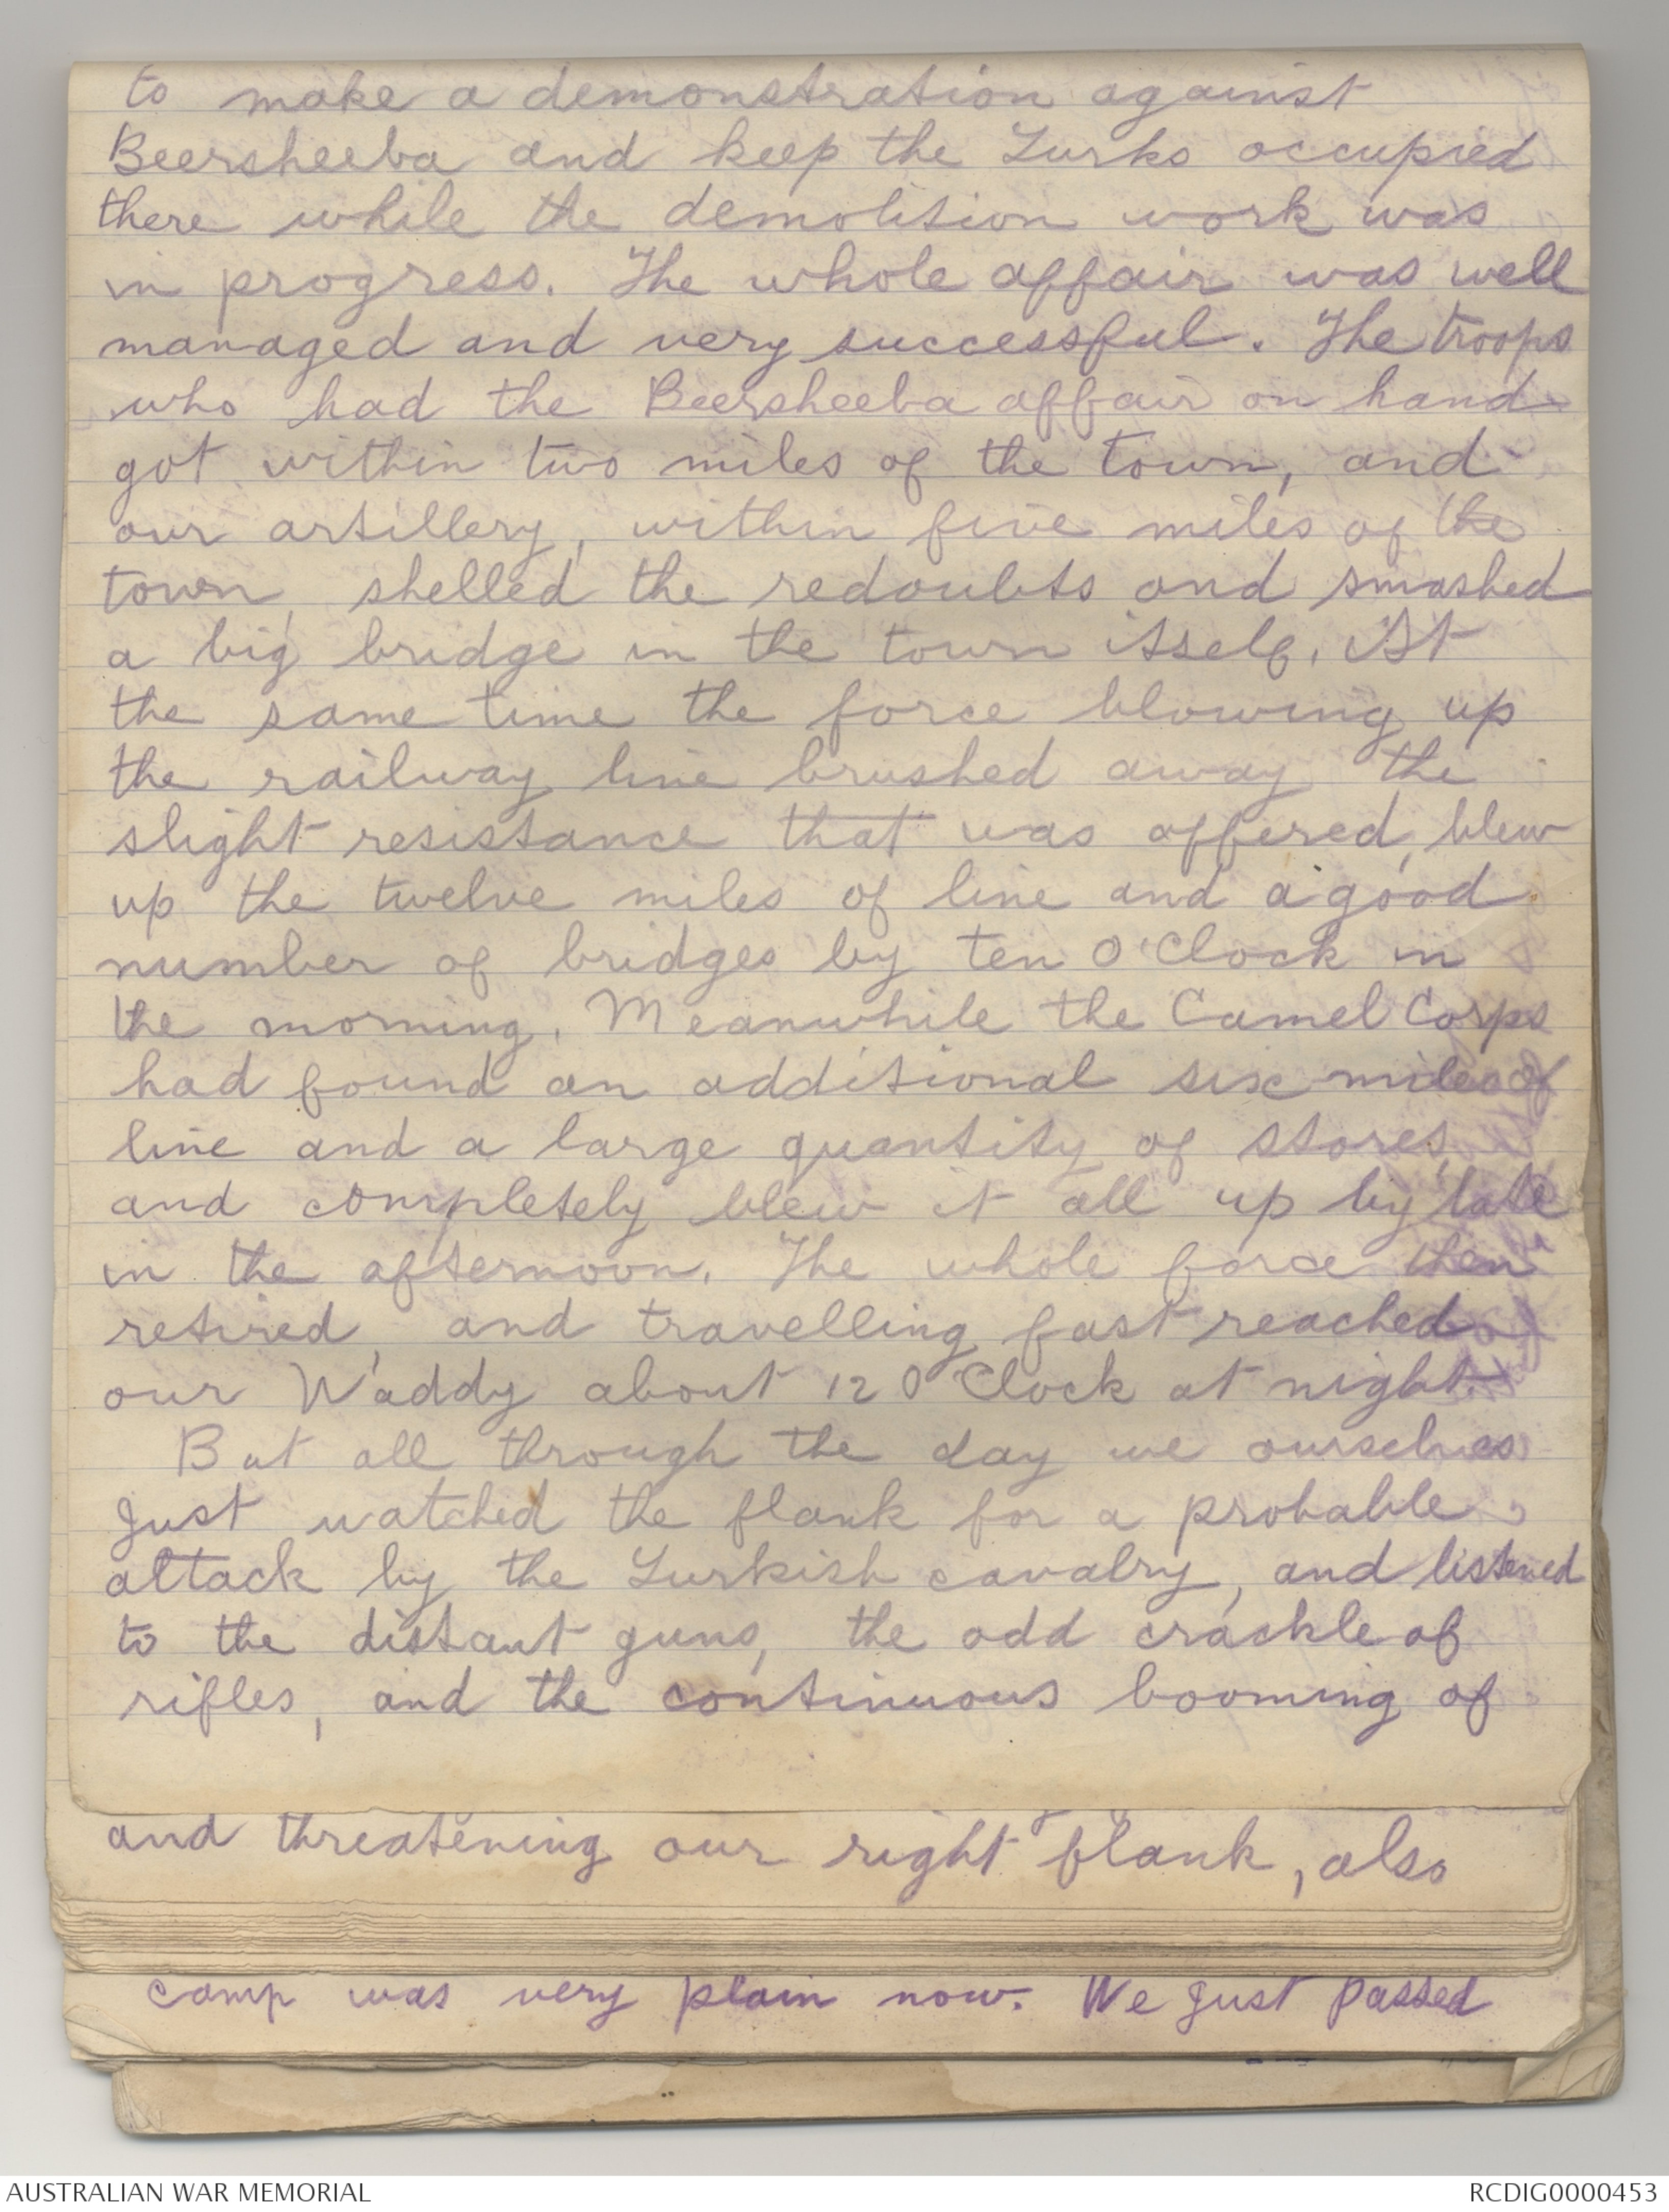 to make a demonstration against
Beersheeba and keep the Turks occupied
there while the demolition work was
in progress. The whole affair was well
managed and very successful. The troops
who had the Beersheeba affair on hand
got within two miles of the town, and
our artillery, within five miles of the
town, shelled the redoubts and smashed
a big bridge in the town itself. At
the same time the force blowing up
the railway line brushed away the
slight resistance that was offered, blew
up the twelve miles of line and a good
number of bridges by ten O'Clock in
the morning. Meanwhile the Camel Corps
had found an additional six miles of
line and a large quantity of stores,
and completely blew it all up by late
in the afternoon. The whole force then
retired, and travelling fast reached
our Waddy about 12 O'Clock at night.
But all through the day we ourselves
just watched the flank for a probable
attack by the Turkish cavalry, and listened
to the distant guns, the odd crackle of
rifles, and the continuous booming of
and threatening our right flank, also
camp was very plain now. We just passed
AUSTRALIAN WAR MEMORIAL
RCDIG0000453